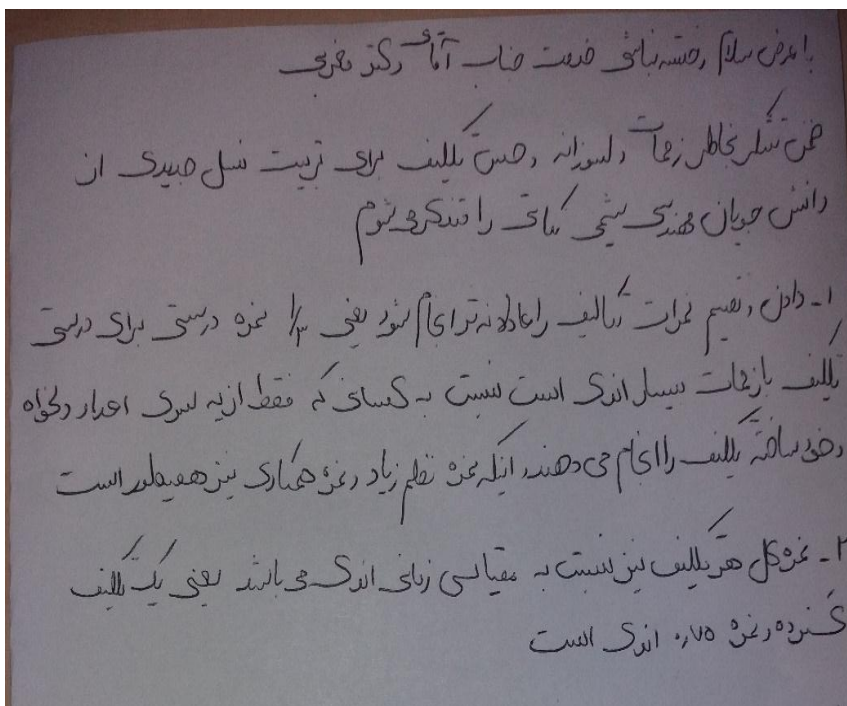 با عرض سلام و خسته نباشی خدمت جناب آقای دکتر مغربی
ضمن تشکر بخاطر زحمات دلسوزانه و حس تکلیف برای تربیت نسل جدیدی از
دانش جویان مهندسی شیمی نکاتی را متذکر می شوم
۱- دادن و تقسیم نمرات تکالیف را عادلانه تر انجام شود یعنی ۱/۳ نمره درستی برای درستی
تکلیف با زحمات بسیار اندک است نسبت به کسانی که فقط از یه سری اعداد دلخواه
و خود ساخته تکلیف را انجام می دهند و اینکه نمره نظم زیاد و نمره همکاری نیز همینطور است
۲- نمره کل هر تکلیف نیز نسبت به مقیاس زمانی اندک می باشد یعنی یک تکلیف
گسترده و نمره ۰/۷۵ اندک است